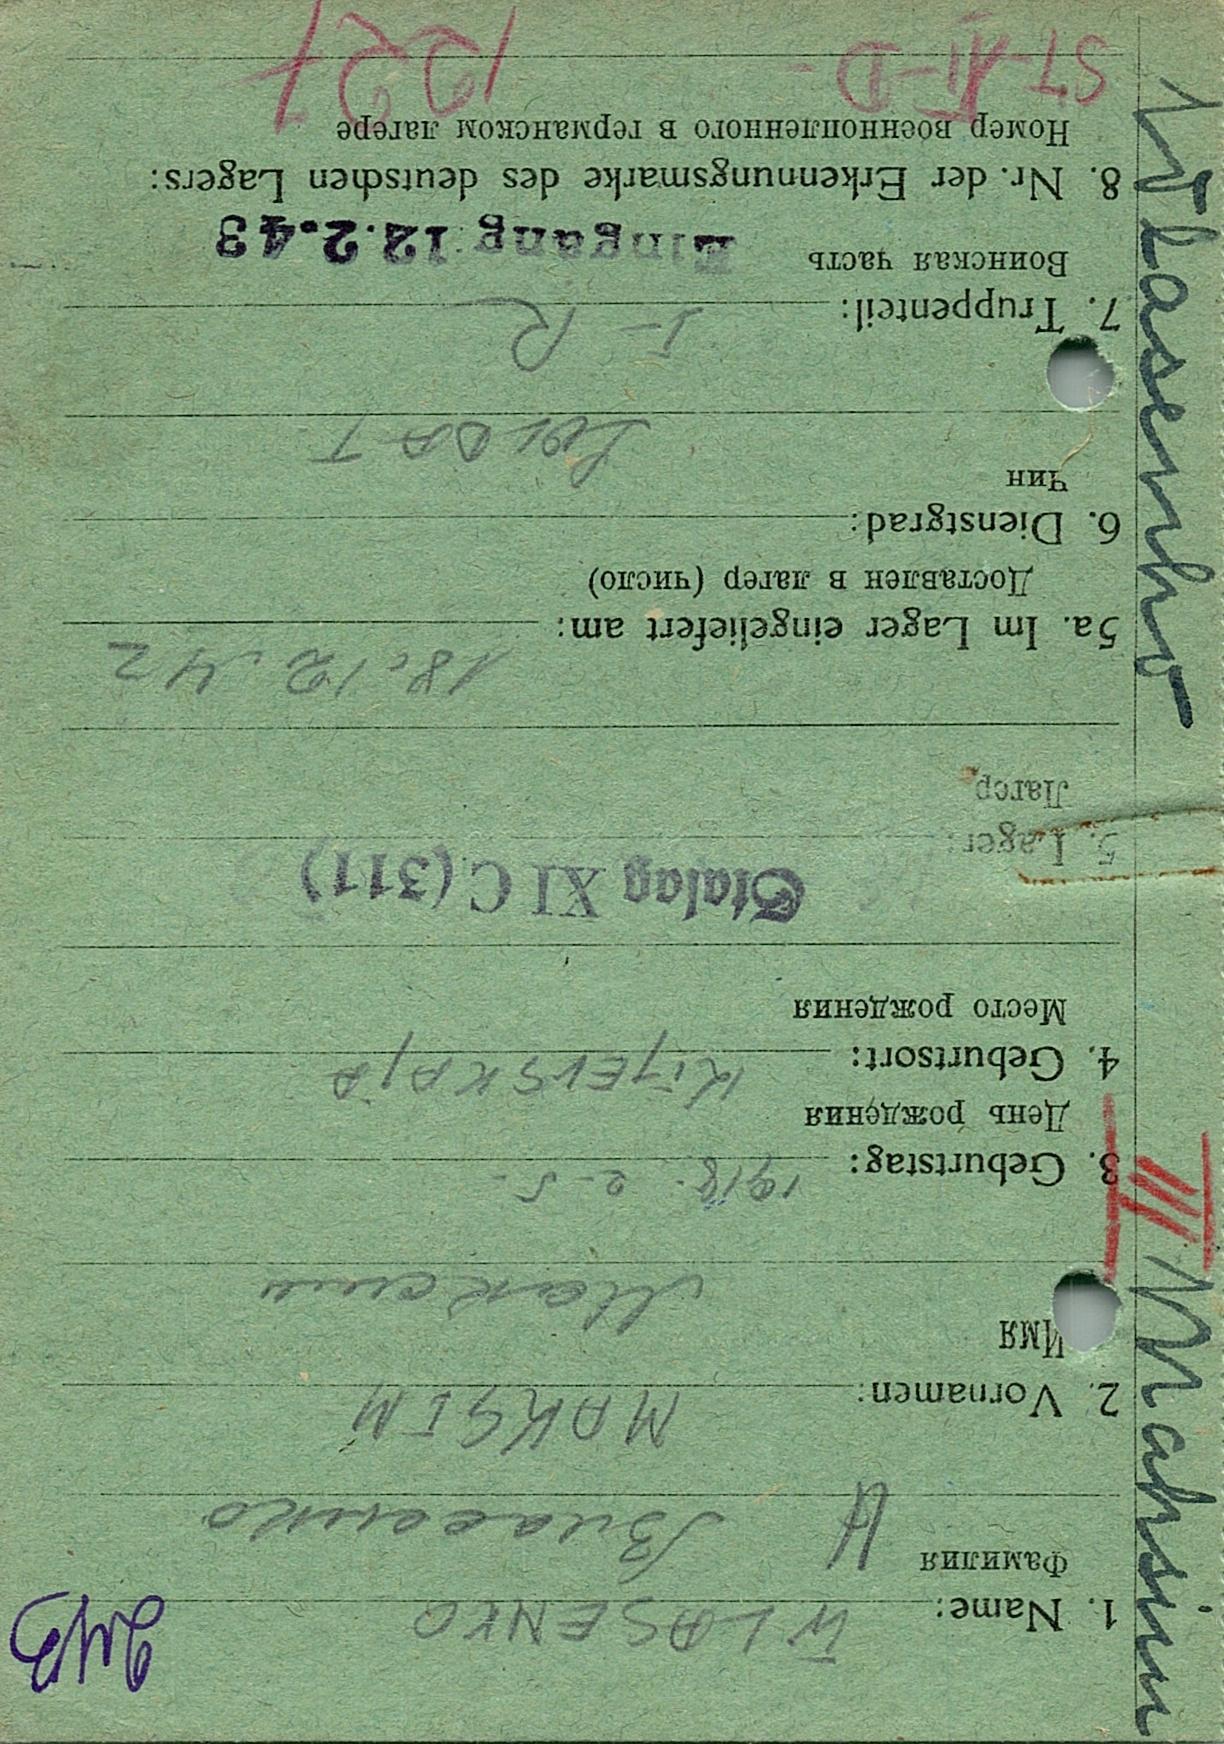 1. Name: WLASENKO
Фамилия
Власенко
2. Vornamen: MAKSIM
Имя
Максим
3. Geburtstag: 1918. 2-5-
День рождения
4. Geburtsort: KIJEVSKAJA
Место рождения
Stalag XI C (311)
5. Lager:
Лагер
18. 12. 42
5a. Im Lager eingeliefert am:
Доставлен в лагер (число)
6. Dienstgrad:
Чин
SOLDAT
7. Truppenteil: I-R
Воинская часть
Eingang 12.2.43
8. Nr. der Erkennungsmarke des deutschen Lagers:
Номер военнопленного в германском лагере
III
Maksim Wlasenko